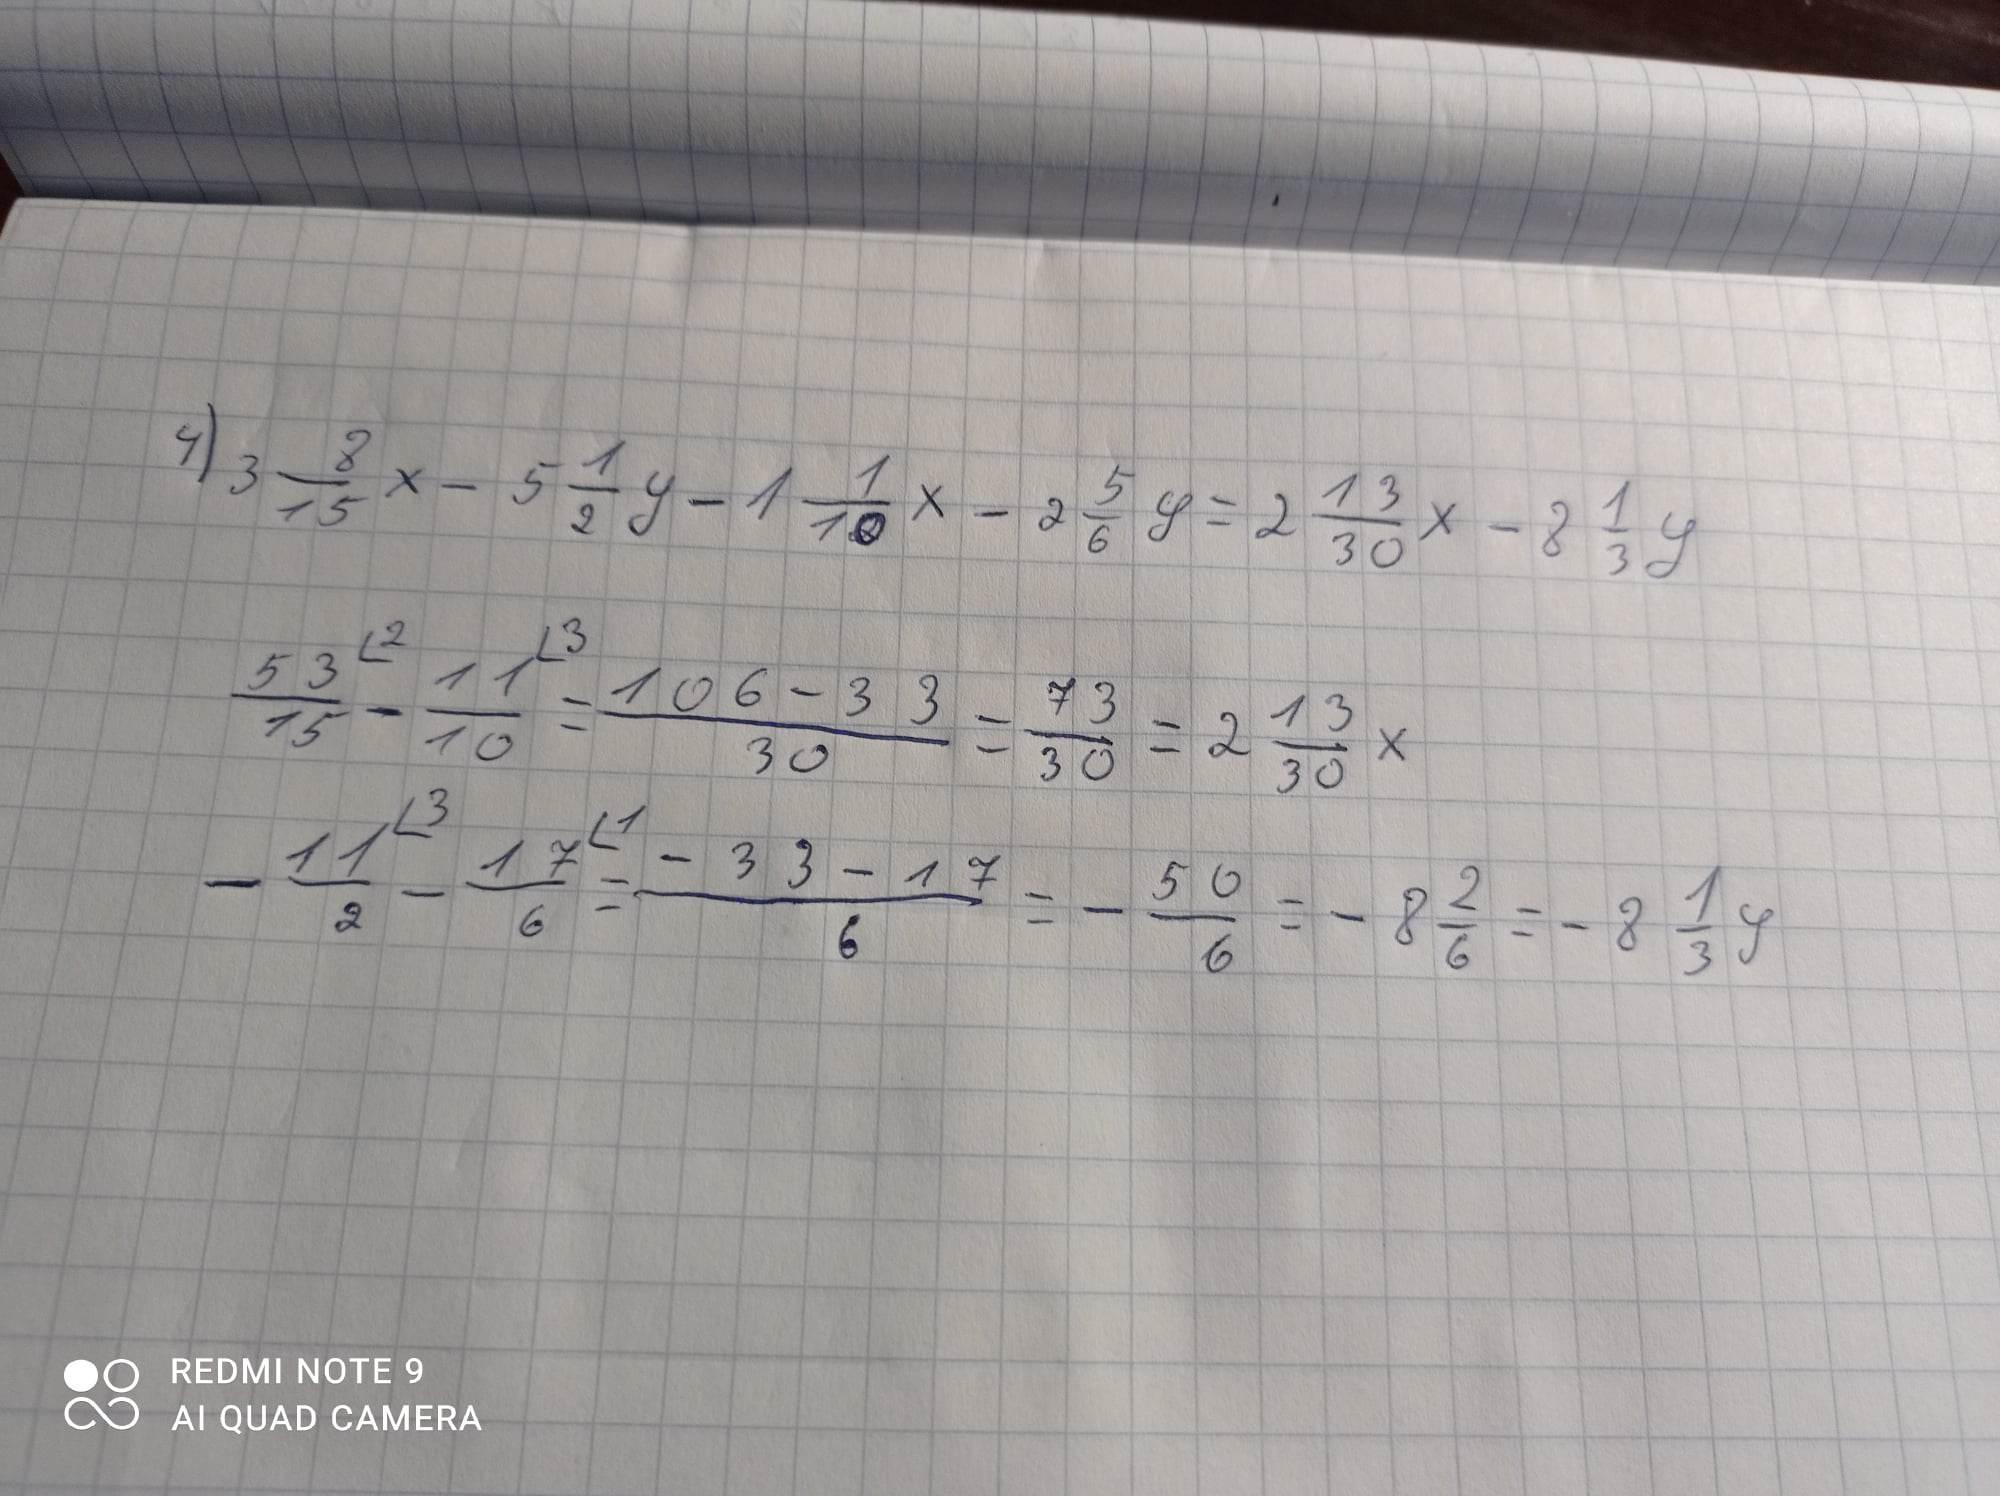 4) 3 8/15 x - 5 1/2 y - 1 1/10 x - 2 5/6 y = 2 13/30 x - 8 1/3 y
53/15 ∟2 - 11/10 ∟3 = 106-33/30 = 73/30 = 2 13/30 x
- 11/2 ∟3 - 17/6 ∟1 = -33-17/6 = - 50/6 = - 8 2/6 = - 8 1/3 y
REDMI NOTE 9
AI QUAD CAMERA